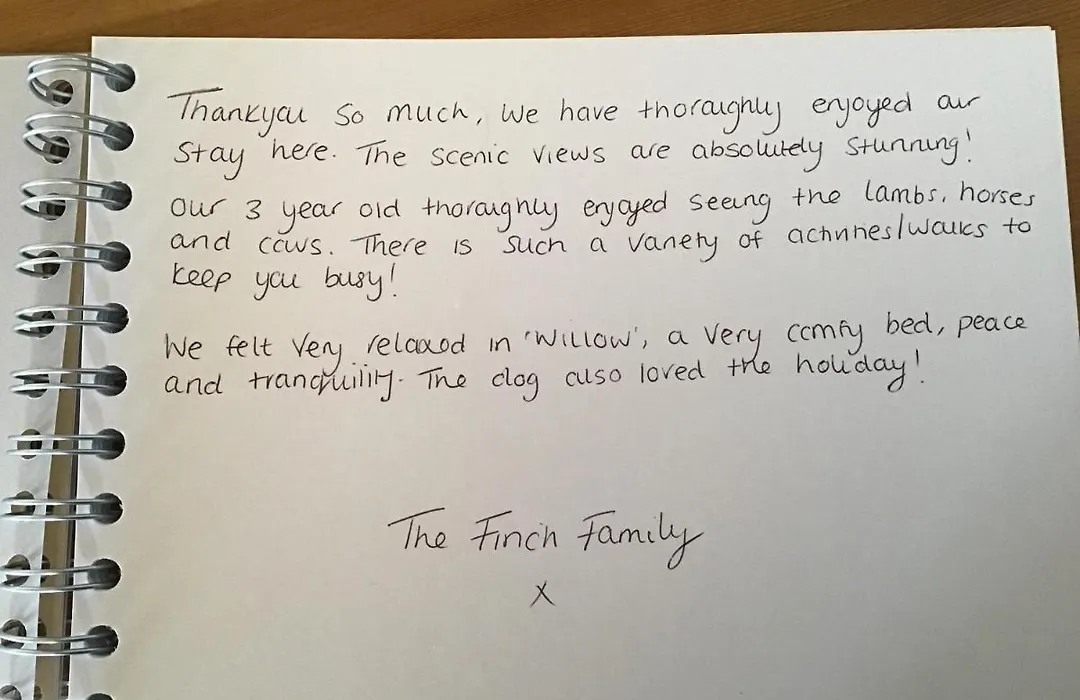 Thankyou so much, we have thoroughly enjoyed our
stay here. The scenic views are absolutely stunning!
Our 3 year old thoroughly enjoyed seeing the lambs, horses
and cows. There is such a variety of activities/walks to
keep you busy!
We felt very relaxed in 'Willow', a very comfy bed, peace
and tranquility. The dog also loved the holiday!
The Finch Family
x